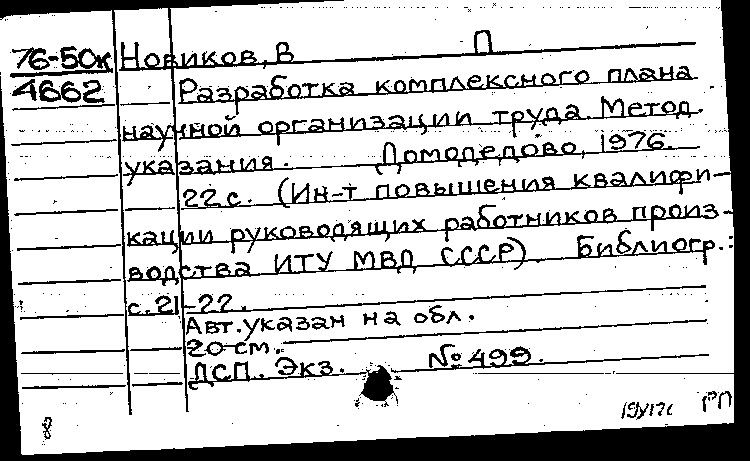 76-50к Новиков, В П
4662 Разработка комплексного плана
научной организации труда. Метод.
указания. Домодедово, 1976.
22 с. (Ин-т повышения квалифи-
кации руководящих работников произ-
водства ИТУ МВД СССР). Библиогр.:
с. 21-22.
Авт. указан на обл.
20 см.
ДСП. Экз. № 499.
8 РП